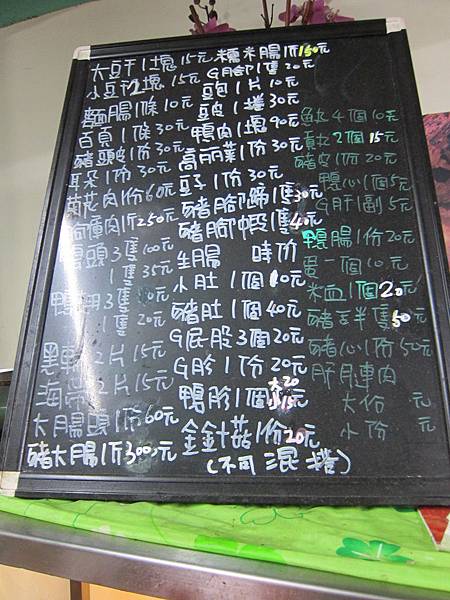 大豆干1塊15元
小豆干2塊15元
麵腸1條10元
百頁1條30元
豬頭皮1份30元
耳朵1份30元
菊花肉1份60元
1份250元
鴨頭3隻100元
1隻35元
鴨翅3隻50元
1隻20元
黑輪2片15元
海帶2片15元
大腸頭1份60元
豬大腸1斤300元
糯米腸1斤150元
G腳1隻20元
豆包1片10元
豆皮1捲30元
鴨肉1塊90元
高丽菜1份30元
豆子1份30元
豬腳蹄1隻30元
豬腳蝦1隻40元
生腸 時价
小肚1個10元
豬肚1個40元
G屁股3個20元
G胗1份20元
鴨胗1個大20小15元
金針菇1份20元
(不可混捲)
魚丸4個10元
貢丸2個15元
豬皮1份20元
鴨心1個5元
G肝1副5元
鴨腸1份20元
蛋一個10元
米血1個20元
豬舌半隻50元
豬心1份50元
肝月連肉
大份 元
小份 元